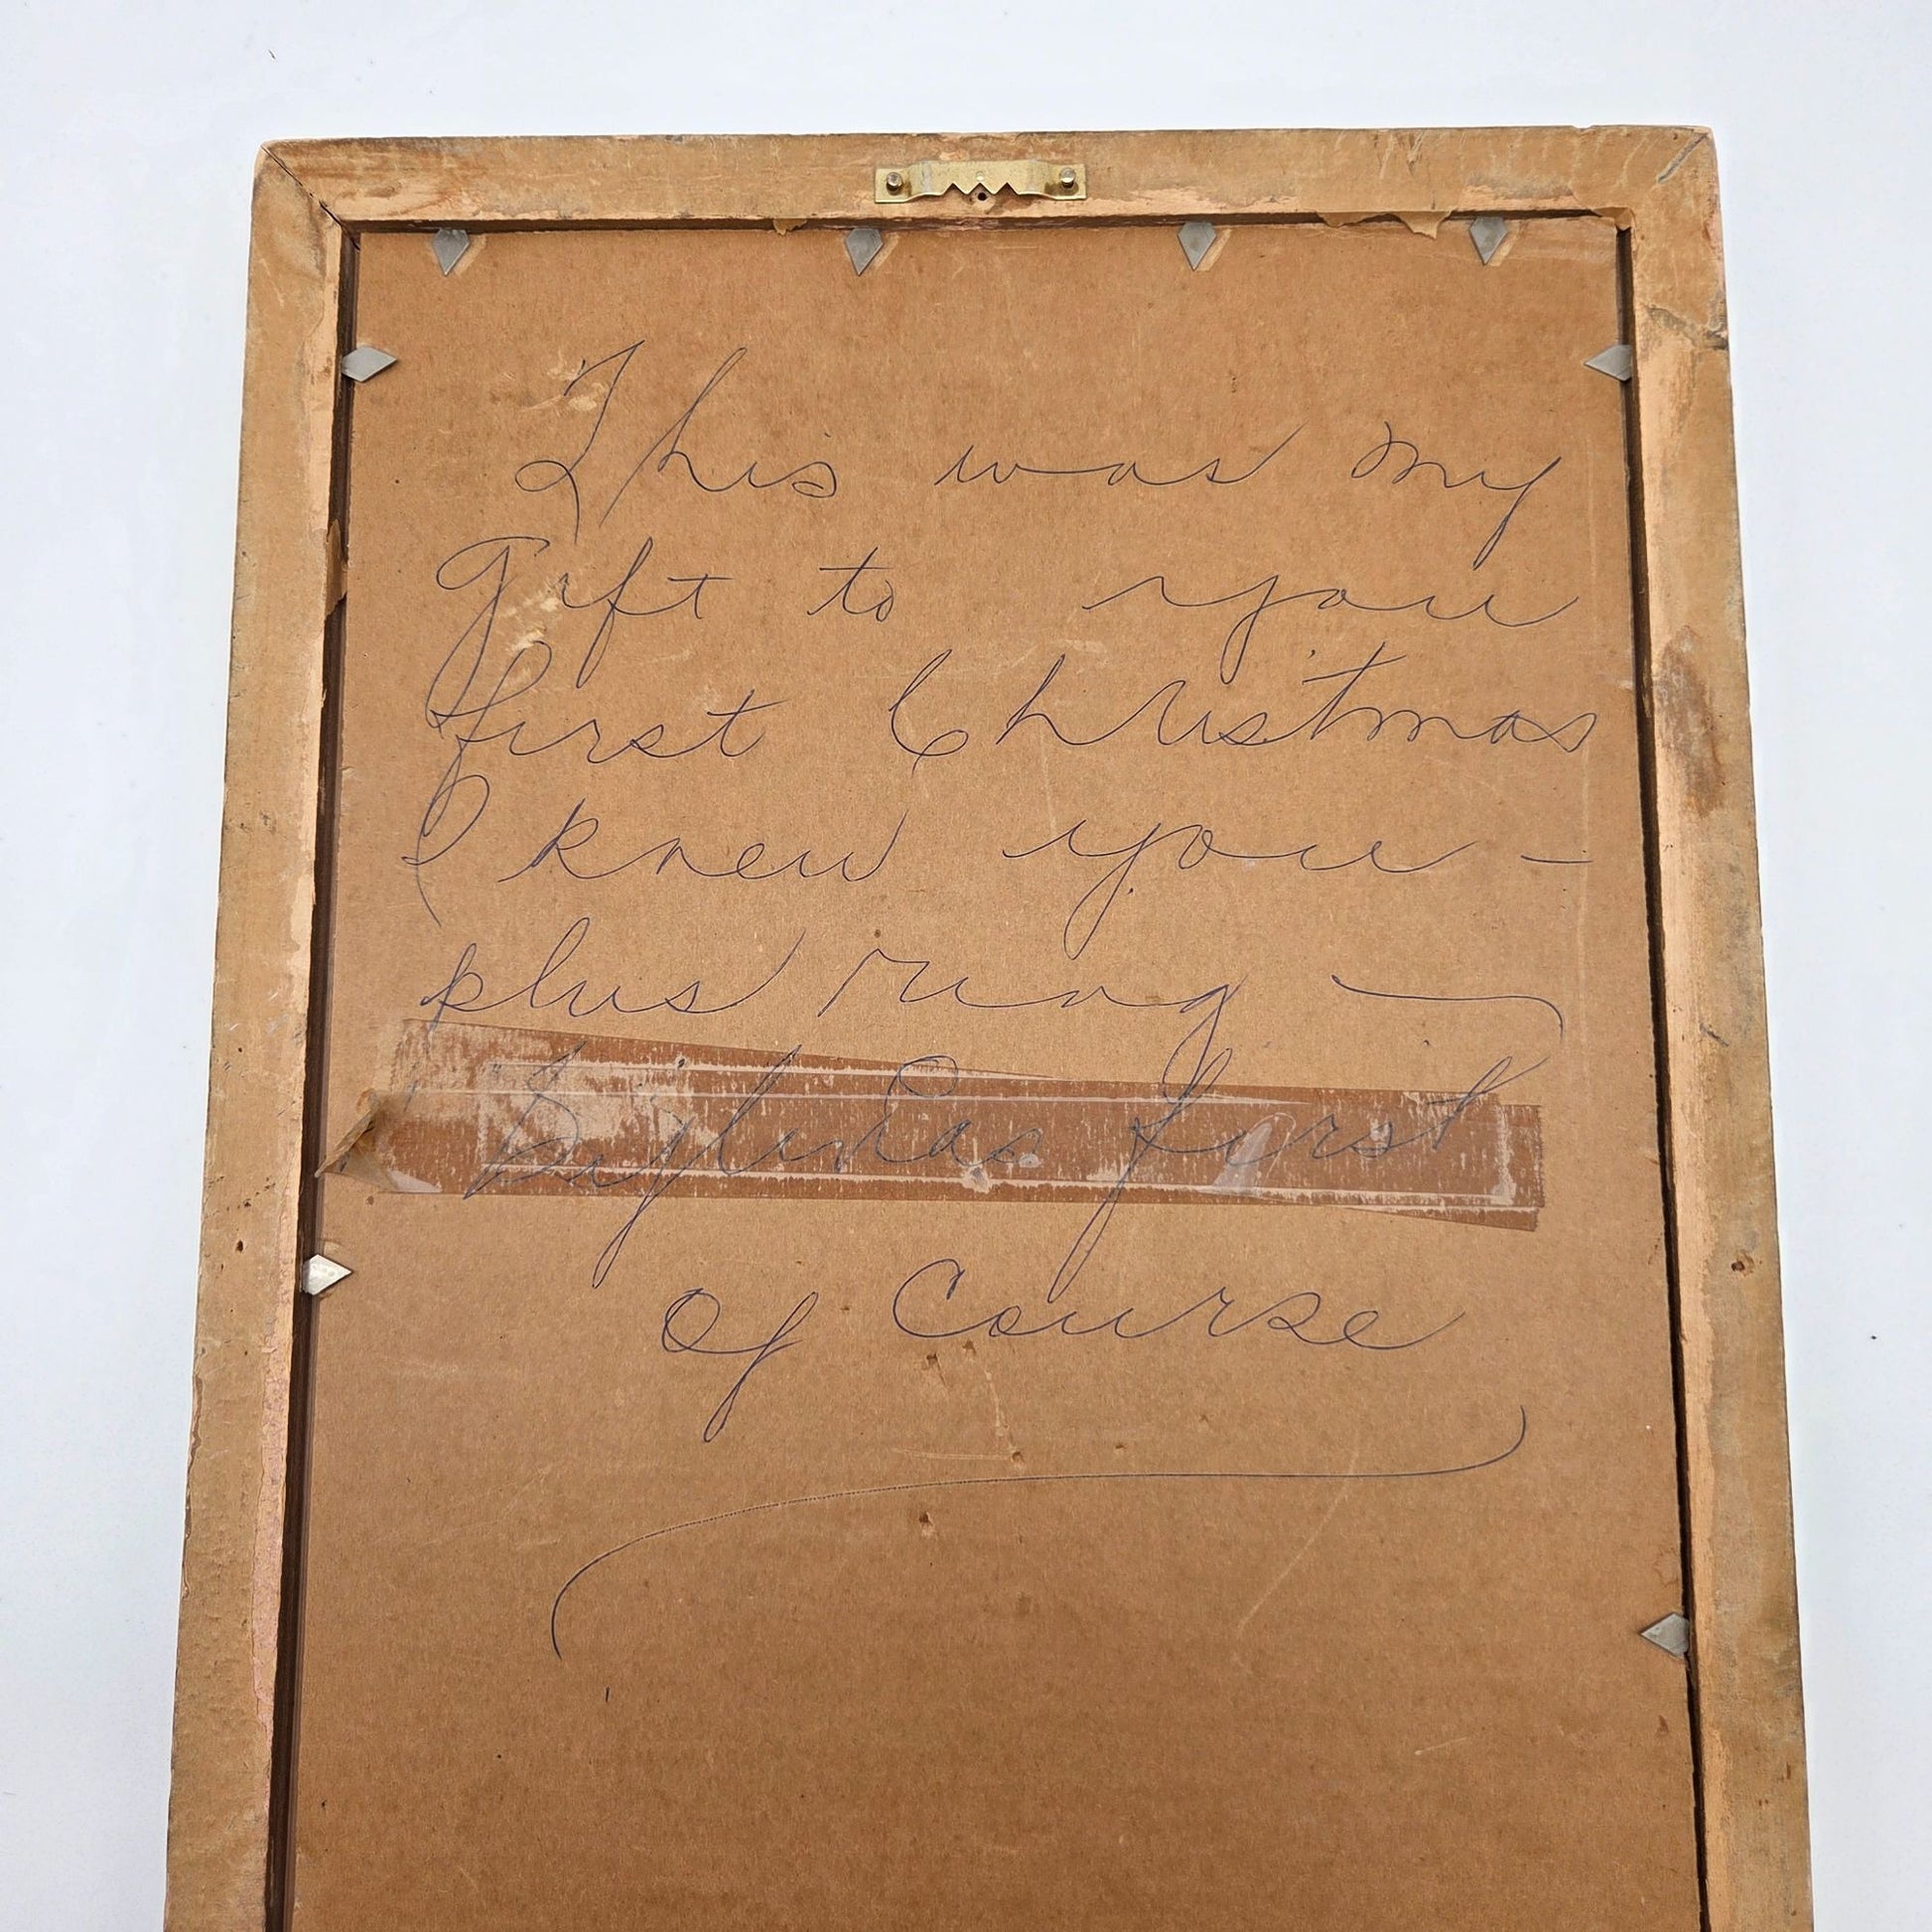 This was my
gift to you
first Christmas
I knew you -
plus ring -
first
Of Course